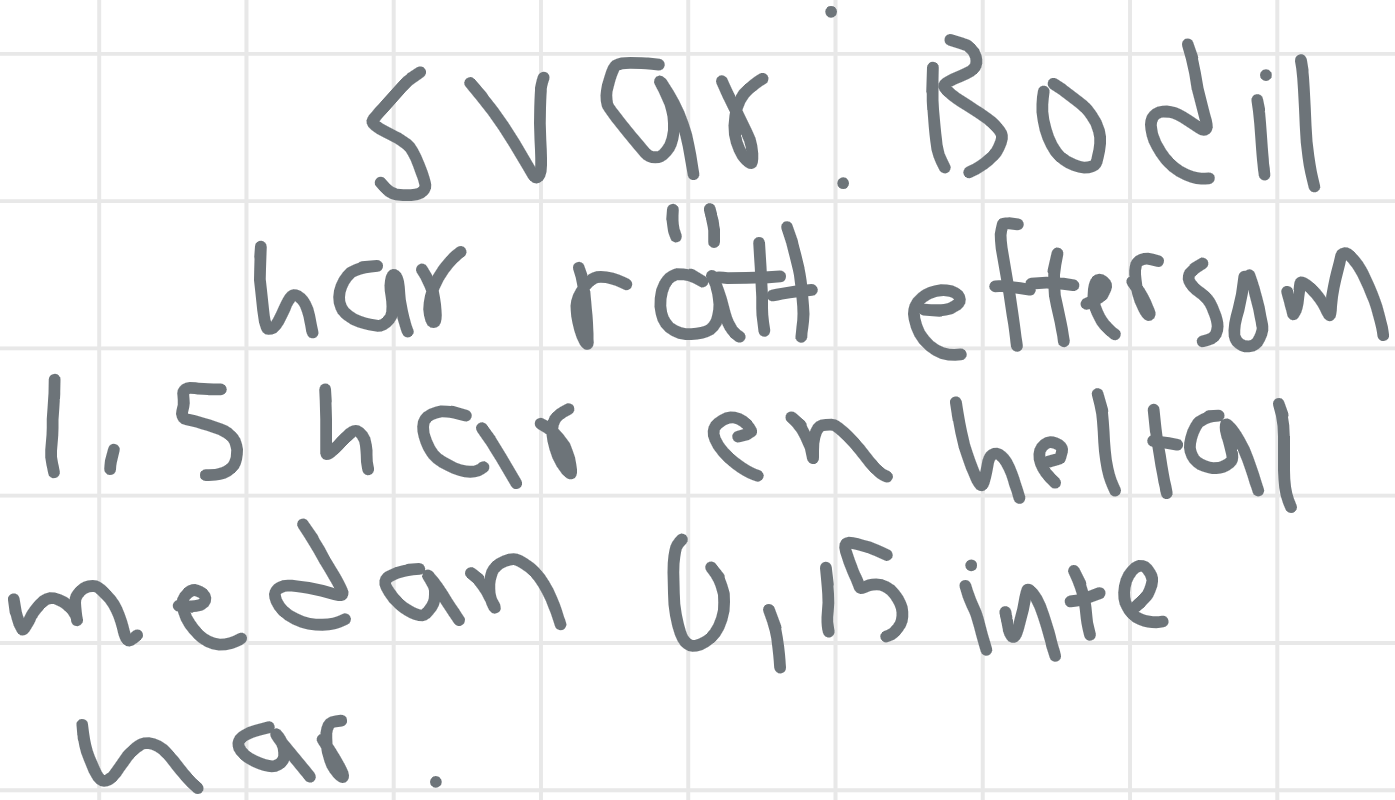 svar: Bodil
har rätt eftersom
1,5 har en heltal
medan 0,15 inte
har.